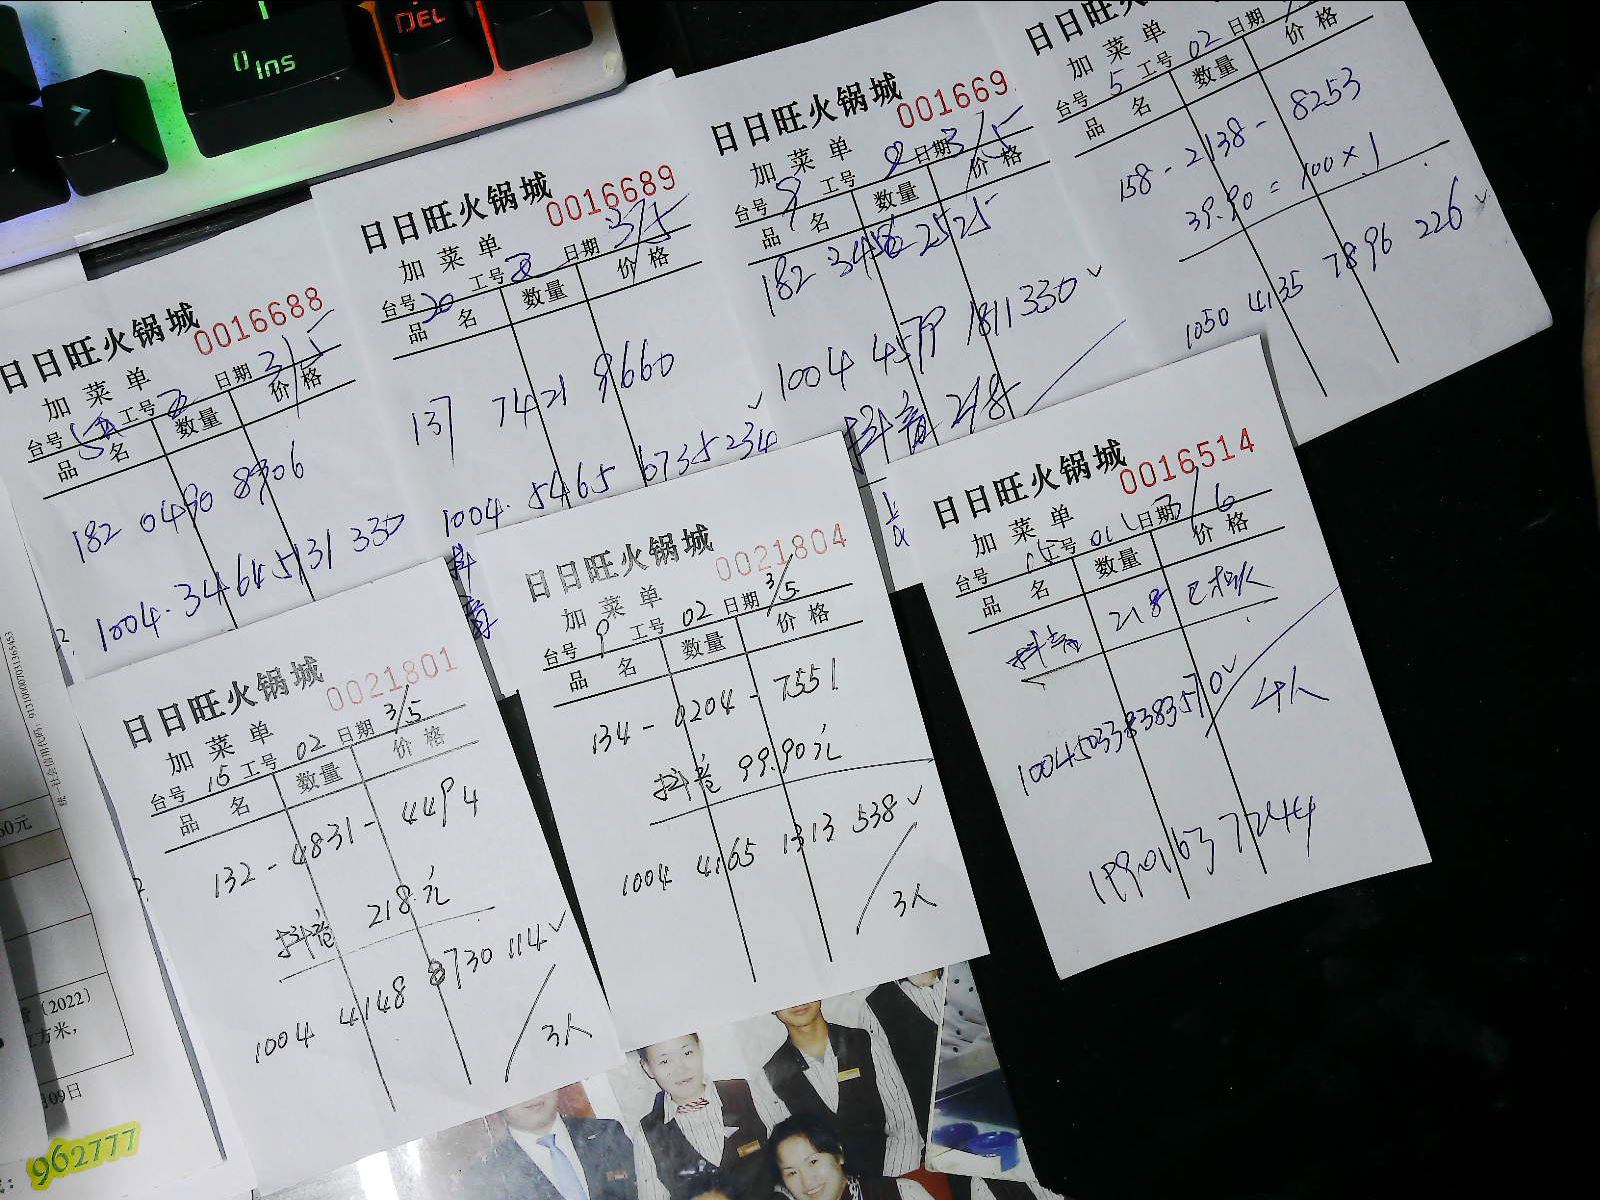 DEL
0 Ins
日日旺火锅城 0016688
加 菜 单
台号 工号 日期 3/5
品 名 数量 价 格
182 0490 8306
1004. 3464 5131 330
日日旺火锅城 0016689
加 菜 单
台号 20 工号 日期 3/5
品 名 数量 价 格
137 7421 9660
1004. 5465 6735 234
抖
音
日日旺火锅城 001669
加 菜 单
台号 9 工号 日期 3/5
品 名 数量 价 格
182 3456 2525
1004 4579 1811 330
抖音 218
日日旺火
加 菜 单
台号 5 工号 02 日期
品 名 数量 价 格
158 - 2138 - 8253
39.90 = 100 × 1
1050 4135 7896 226
日日旺火锅城 0021801
加 菜 单
台号 15 工号 02 日期 3/5
品 名 数量 价 格
132 - 4831 - 4494
抖音 218元
1004 4148 8730 114
3人
日日旺火锅城 0021804
加 菜 单
台号 9 工号 02 日期 3/5
品 名 数量 价 格
134 - 0204 - 7551
抖音 99.90元
1004 4165 1313 538
3人
日日旺火锅城 0016514
加 菜 单
台号 15 工号 01 日期 3/6
品 名 数量 价 格
抖音 218
1004503383835710
4人
199 0163 7244
60元
(2022)
方米,
月09日
962777